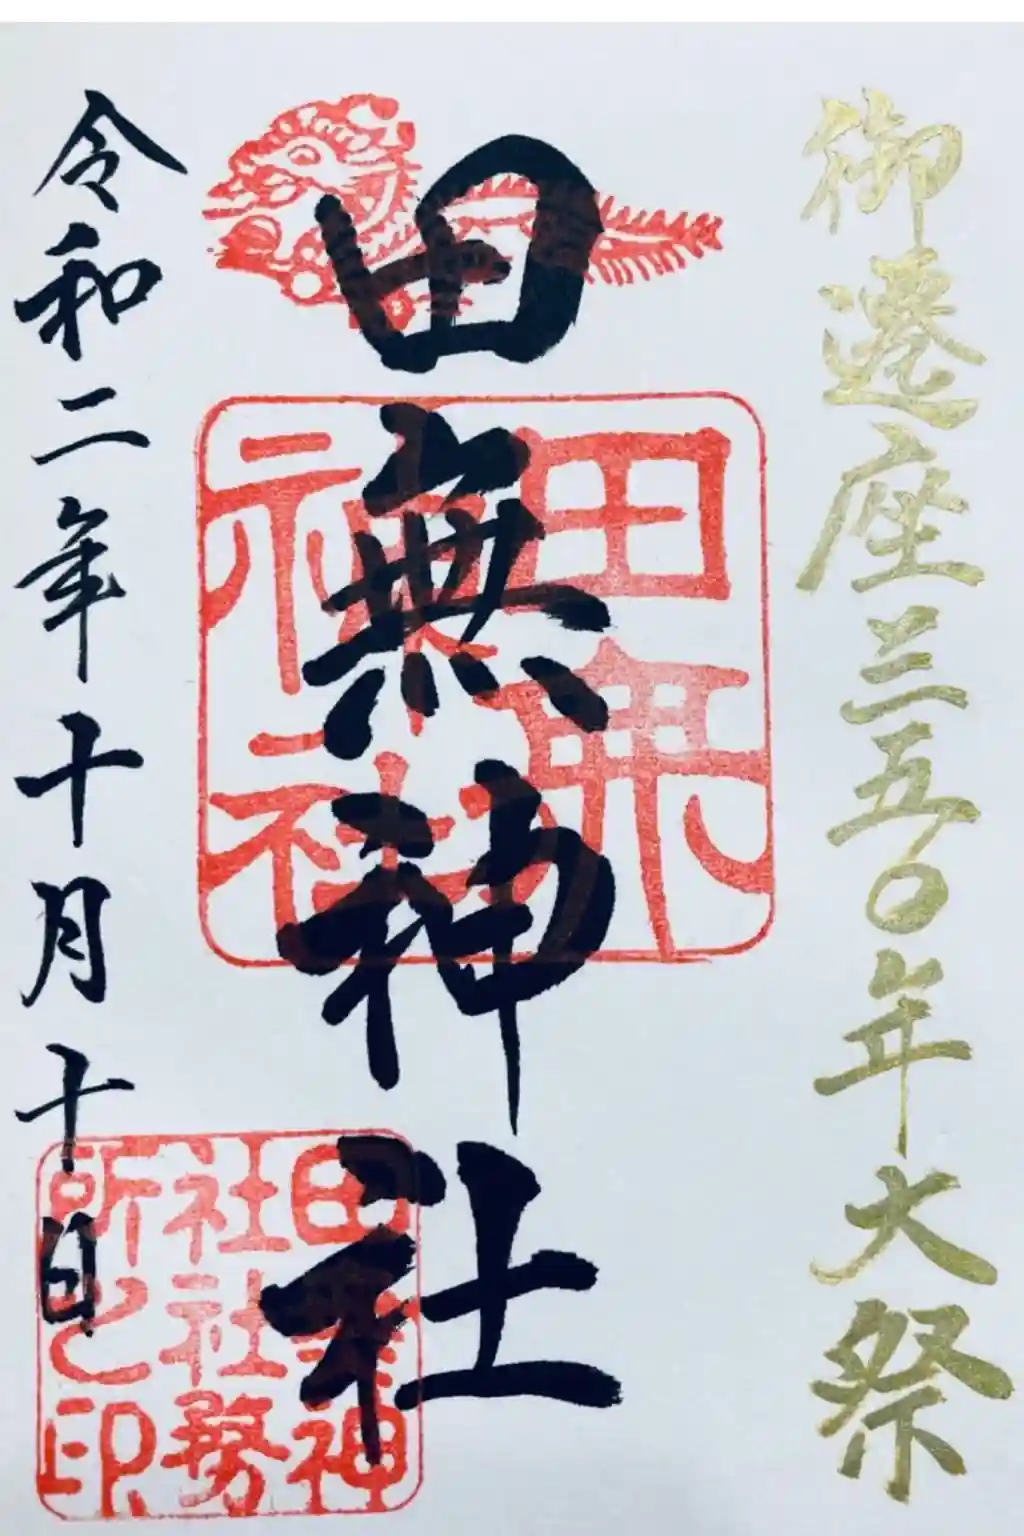 御遷座三五〇年大祭
田無神社
令和二年十月十日
田無
神社
田無神
社社務
所之印